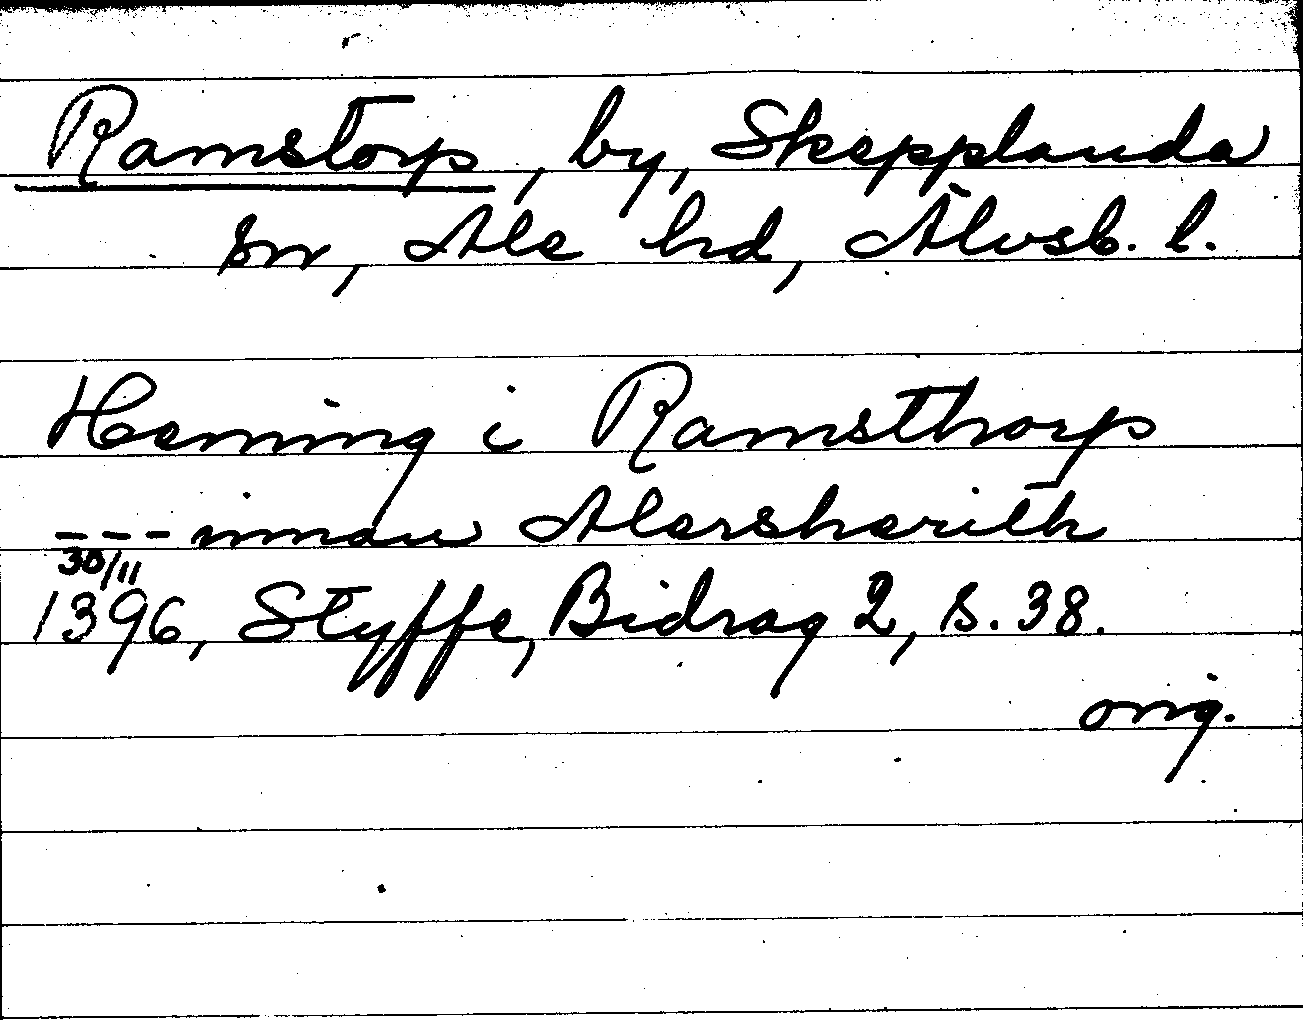 Ramstorp, by, Skepplanda
sn, Ale hd, Älvsb. l.
Heming i Ramsthorp
--- innan Alersherith
30/11
1396, Styffe, Bidrag 2, s. 38.
orig.